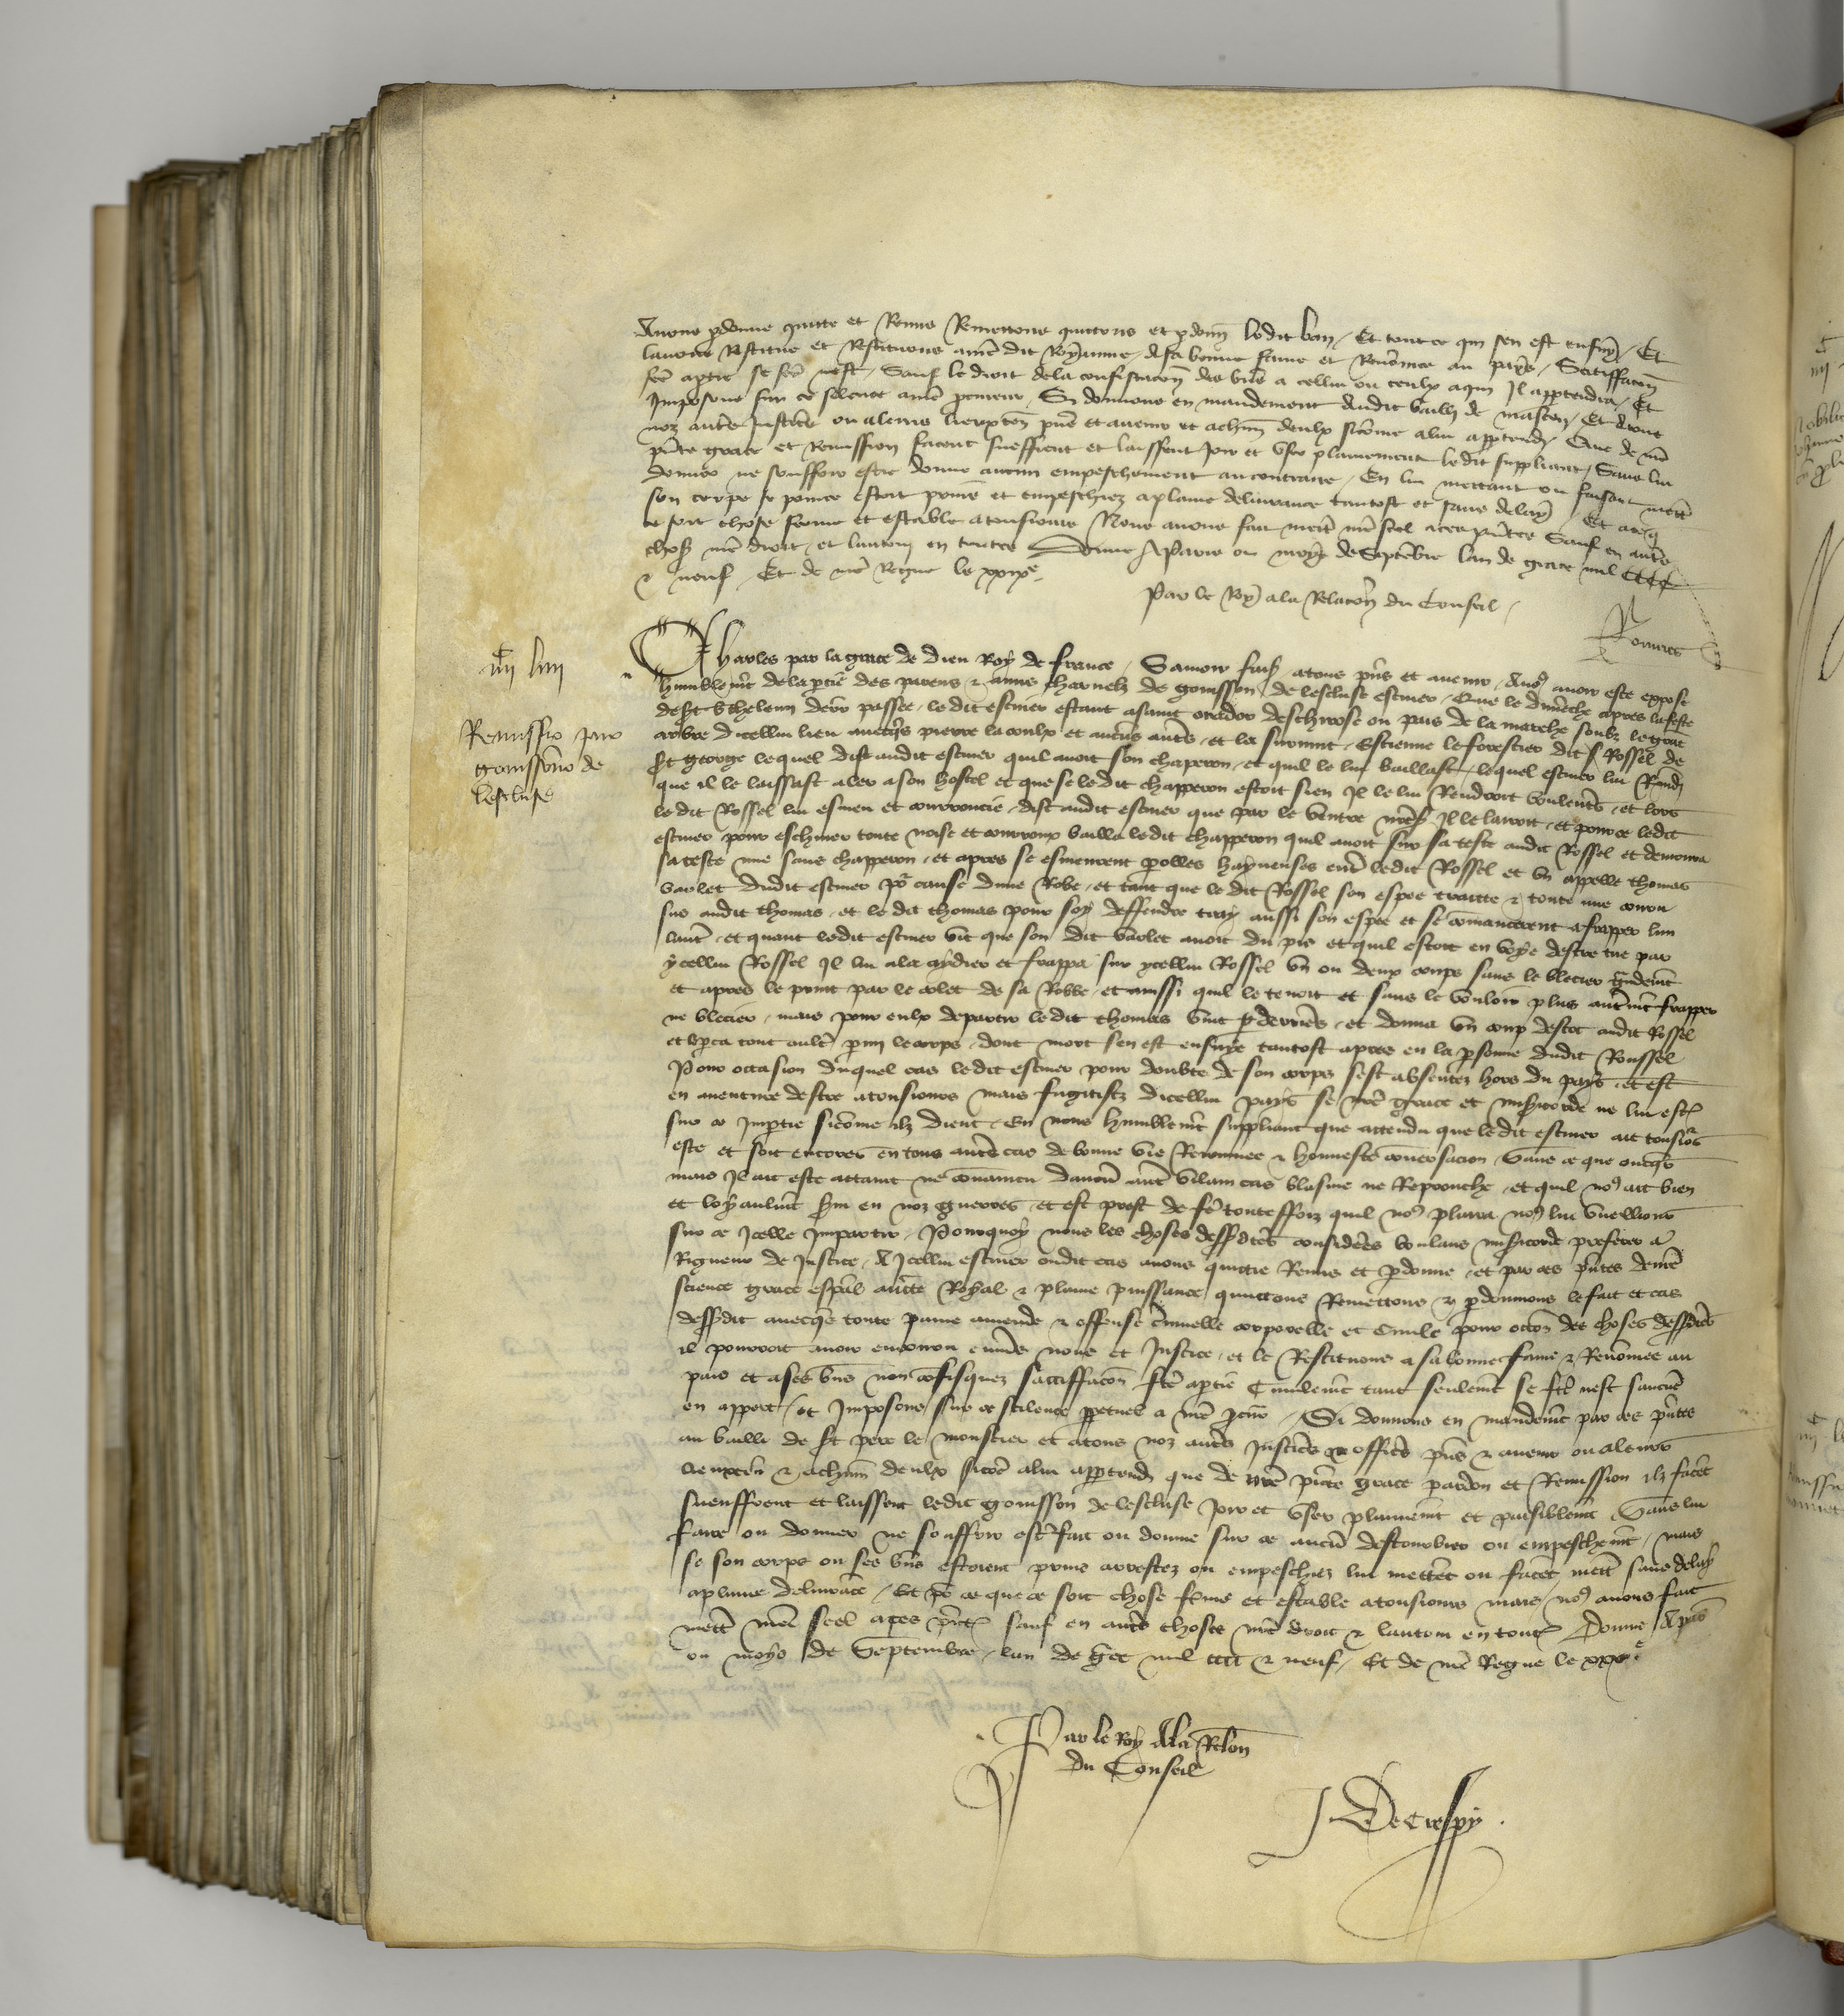 Avons pdonne quitte et Remis Remettons quittons et pdonn ledit ban / Et tout ce qui sen est ensuy / Et
lavons restitue et restituons a nre dit Royaume, A sa bonne fame et Renomee au pays, Satisffacon
fce aptie se fce nest, Sauf le droit de la confiscacon des biens a cellui ou ceulx a qui Il apptendra, Et
Imposons sur ce silence a nre pcureur, Si donnons en mandement Audit bailli de mascon, Et a tous
noz autes Justices ou a leurs lieuxten pns et avenir et a chun deulx sicome a lui apptendra, Que de nre
pnte grace et remission facent sueffrent et laissent Joir et user plainement ledit suppliant, Sans lui
donner ne souffrir estre donne aucun empeschement au contraire, En lui mettant ou faisant mett
son corps se pour ce estoit prins et empeschiez a plaine delivrance tantost et sans delay, Et a ce q
ce soit chose ferme et estable a tousiours Nous avons fait mett nre scel a ces pntes Sauf en autes
choses nre droit, et lautruy en toutes Donne A Paris ou moys de Septembre lan de grace mil cccc
& neuf, Et de nre Regne le xxixe
Par le Roy a la Relacon du Conseil,
iiic liii
Remissio pro
gouissono de
lescluse
Charles par la grace de dieu Roy de france, Savoir faiz a tous pns et avenir, A nous avoir este expose
humblemt de la ptie des parens & amis charnelz de gouisson de lescluse escuier, Que le dimenche apres la feste
de st Berthelemi derr passee, le dit escuier estant
arbre dicellui lieu avecqs pierre la coulx et aucuns autes, et la survint, Estienne le forestier dit Rossel de
st george lequel dist audit escuier quil avoit son chaperon, et quil le lui baillast, lequel escuier lui Rendi
que il le laissast aler a son hostel et que se ledit chapperon estoit sien Il le lui Rendroit voulentes, et lors
ledit Rossel lui esmeu et courroucie, dist audit escuier que par le ventre Il le lairoit, et pour ce ledit
escuier, pour eschiver toute noise et courroux bailla ledit chapperon quil avoit sur sa teste audit Rossel et demoura
sa teste nue sans chapperon, et apres se esmeurent polles haynenses entre ledit Rossel et un appelle thomas
varlet dudit escuier pr cause dune Robe, et tant que ledit Rossel son espee traitte & toute nue couru
sus audit thomas, et ledit thomas pour soy deffendre tray aussi son espee et se comancerent a frapper lun
laute, et quant ledit escuier vit que son dit varlet avoit du pis et quil estoit en voye destre tue par
ycellui Rossel Il lui ala aydier et frappa sur ycellui Rossel un ou deux coups sans le blecier gdemt
et apres le print par le colet de sa Robe, et aussi quil le tenoit et sans le vouloir plus autemt frapper
ne blecier, mais pour eulx departir ledit thomas vint p derrieres, et donna un coup destoc audit Rossel
et lpca tout oulte pmi le corps, dont mort sen est ensuye tantost apres en la psonne dudit Roussel
Pour occasion duquel cas ledit escuier pour doubte de son corps sest absentez hors du pays, et est
en aventure destre a tousiours mais fugitifz dicellui pays se nre grace et misicorde ne lui est
sur ce Imptie sicome ilz dient, En nous humblemt suppliant que attendu que ledit escuier ait tousiours
este et soit encores en tous autes cas de bonne vie Renommee & honneste conversacion, sans ce que oncqs
mais Il ait este attaint ne convaincu daucun aute vilain cas blasme ne Reprouche, et quil nous ait bien
et loyaulmt svi en noz guerres, et est prest de fe touteffoiz quil nous plaira nous lui vueillions
sur ce Icelle impartir, Pourquoy nous les choses dessdces considees voulans misicorde preferer a
Rigueur de Justice, A Icellui escuier ou dit cas avons quitie Remis et pdonne, et par ces pntes de nre
science grace espal aucte Royal & plaine puissance quittons Remettons & pdonnons le fait et cas
dessdit avecqs toute paine amende & offense cminelle corporelle et Civile pour occon des choses dessdces
il pourroit avoir encouru envers nous et Justice, et le Restituons a sa bonne fame & Renomee au
pais et a ses bns non cofisquez satisffacon fce a ptie civilemt tant seulemt se fce nest
en appert, et Imposons sur ce scilence ppetuel a nre pcur, Si donnons en mandemt par ces pntes
au bailli de st pere le monstier et a tous noz autes Justices & offices pns & avenir ou a leurs
lieuxten & a chun deulx sicoe a lui apptendra que de nre pnte grace pardon et Remission ilz facet
sueuffrent et laissent ledit gouisson de lescluse Joir et user plainemt et paisiblemt, Sans lui
faire ou donner ne souffrir este fait ou donne sur ce aucun destourbier ou empeschemt, mais
se son corps ou ses bns estoient prins arrestez ou empeschiez lui mettet ou facet mett sans delay
a plaine delivrace, Et pr ce que ce soit chose fme et estable a tousiours mais, nous avons fait
mett nre scel a ces pntes sauf en autes choses nre droit & lautrui en toutes Donne A pis
ou moys de Septembre, lan de gce mil cccc & neuf, Et de nre Regne le xxxe
Par le Roy A la Relon
du Conseil
J. De Crespy.